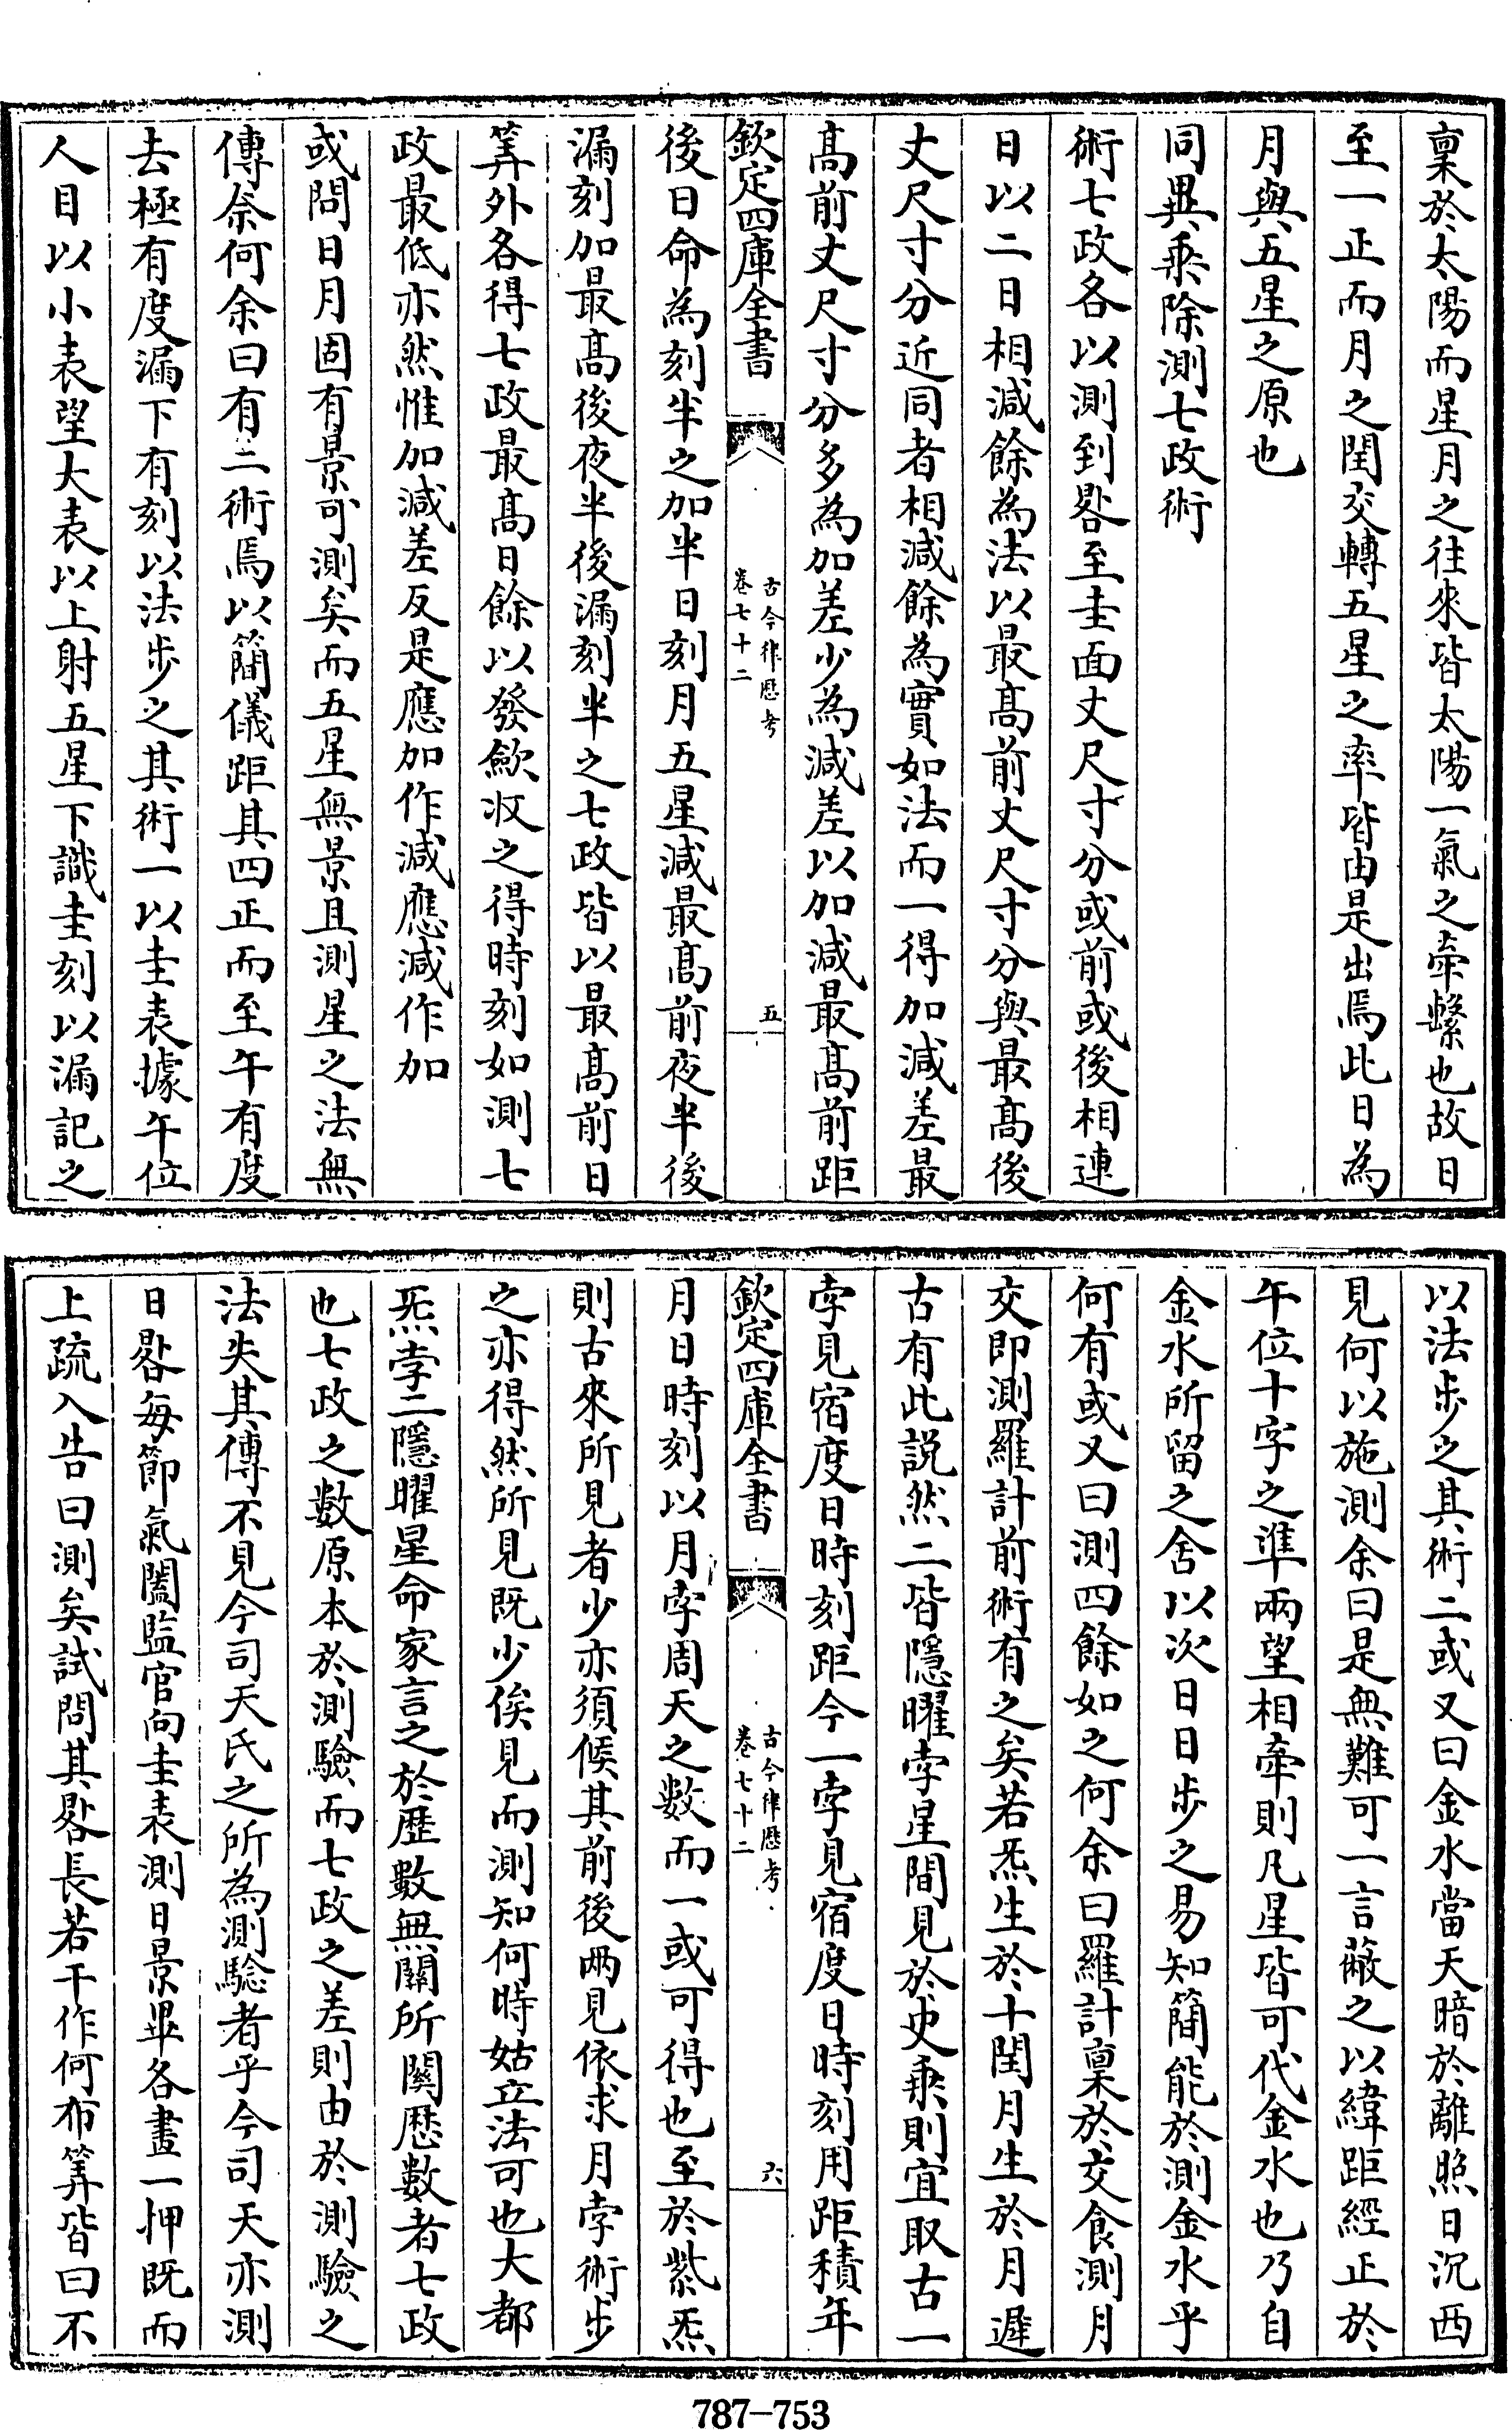 稟於太陽而星月之往來皆太陽一氣之牽繫也故日
至一正而月之閏交轉五星之率皆由是出焉此日為
月與五星之原也
同異乘除測七政術
術七政各以測到晷至圭面丈尺寸分或前或後相連
日以二日相減餘為法以最高前丈尺寸分與最高後
丈尺寸分近同者相減餘為實如法而一得加減差最
高前丈尺寸分多為加差少為減差以加減最高前距
欽定四庫全書
古今律歷考
卷七十二
五
後日命為刻半之加半日刻月五星減最高前夜半後
漏刻加最高後夜半後漏刻半之七政皆以最高前日
筭外各得七政最高日餘以發歛收之得時刻如測七
政最低亦然惟加減差反是應加作減應減作加
或問日月固有景可測矣而五星無景且測星之法無
傳奈何余曰有二術焉以簡儀距其四正而至午有度
去極有度漏下有刻以法步之其術一以圭表據午位
人目以小表望大表以上射五星下識圭刻以漏記之
以法步之其術二或又曰金水當天暗於離照日沉西
見何以施測余曰是無難可一言蔽之以緯距經正於
午位十字之準兩望相牽則凡星皆可代金水也乃自
金水所留之舍以次日日步之易知簡能於測金水乎
何有或又曰測四餘如之何余曰羅計稟於交食測月
交即測羅計前術有之矣若炁生於十閏月生於月遲
古有此說然二皆隱曜孛星間見於史乘則宜取古一
孛見宿度日時刻距今一孛見宿度日時刻用距積年
欽定四庫全書
古今律歷考
卷七十二
六
月日時刻以月孛周天之數而一或可得也至於紫炁
則古來所見者少亦須候其前後兩見依求月孛術步
之亦得然所見既少俟見而測知何時姑立法可也大都
炁孛二隱曜星命家言之於歷數無關所關歷數者七政
也七政之數原本於測驗而七政之差則由於測驗之
法失其傳不見今司天氏之所為測驗者乎今司天亦測
日晷每節氣闔監官向圭表測日景畢各畫一押既而
上疏入告曰測矣試問其晷長若干作何布筭皆曰不
787-753